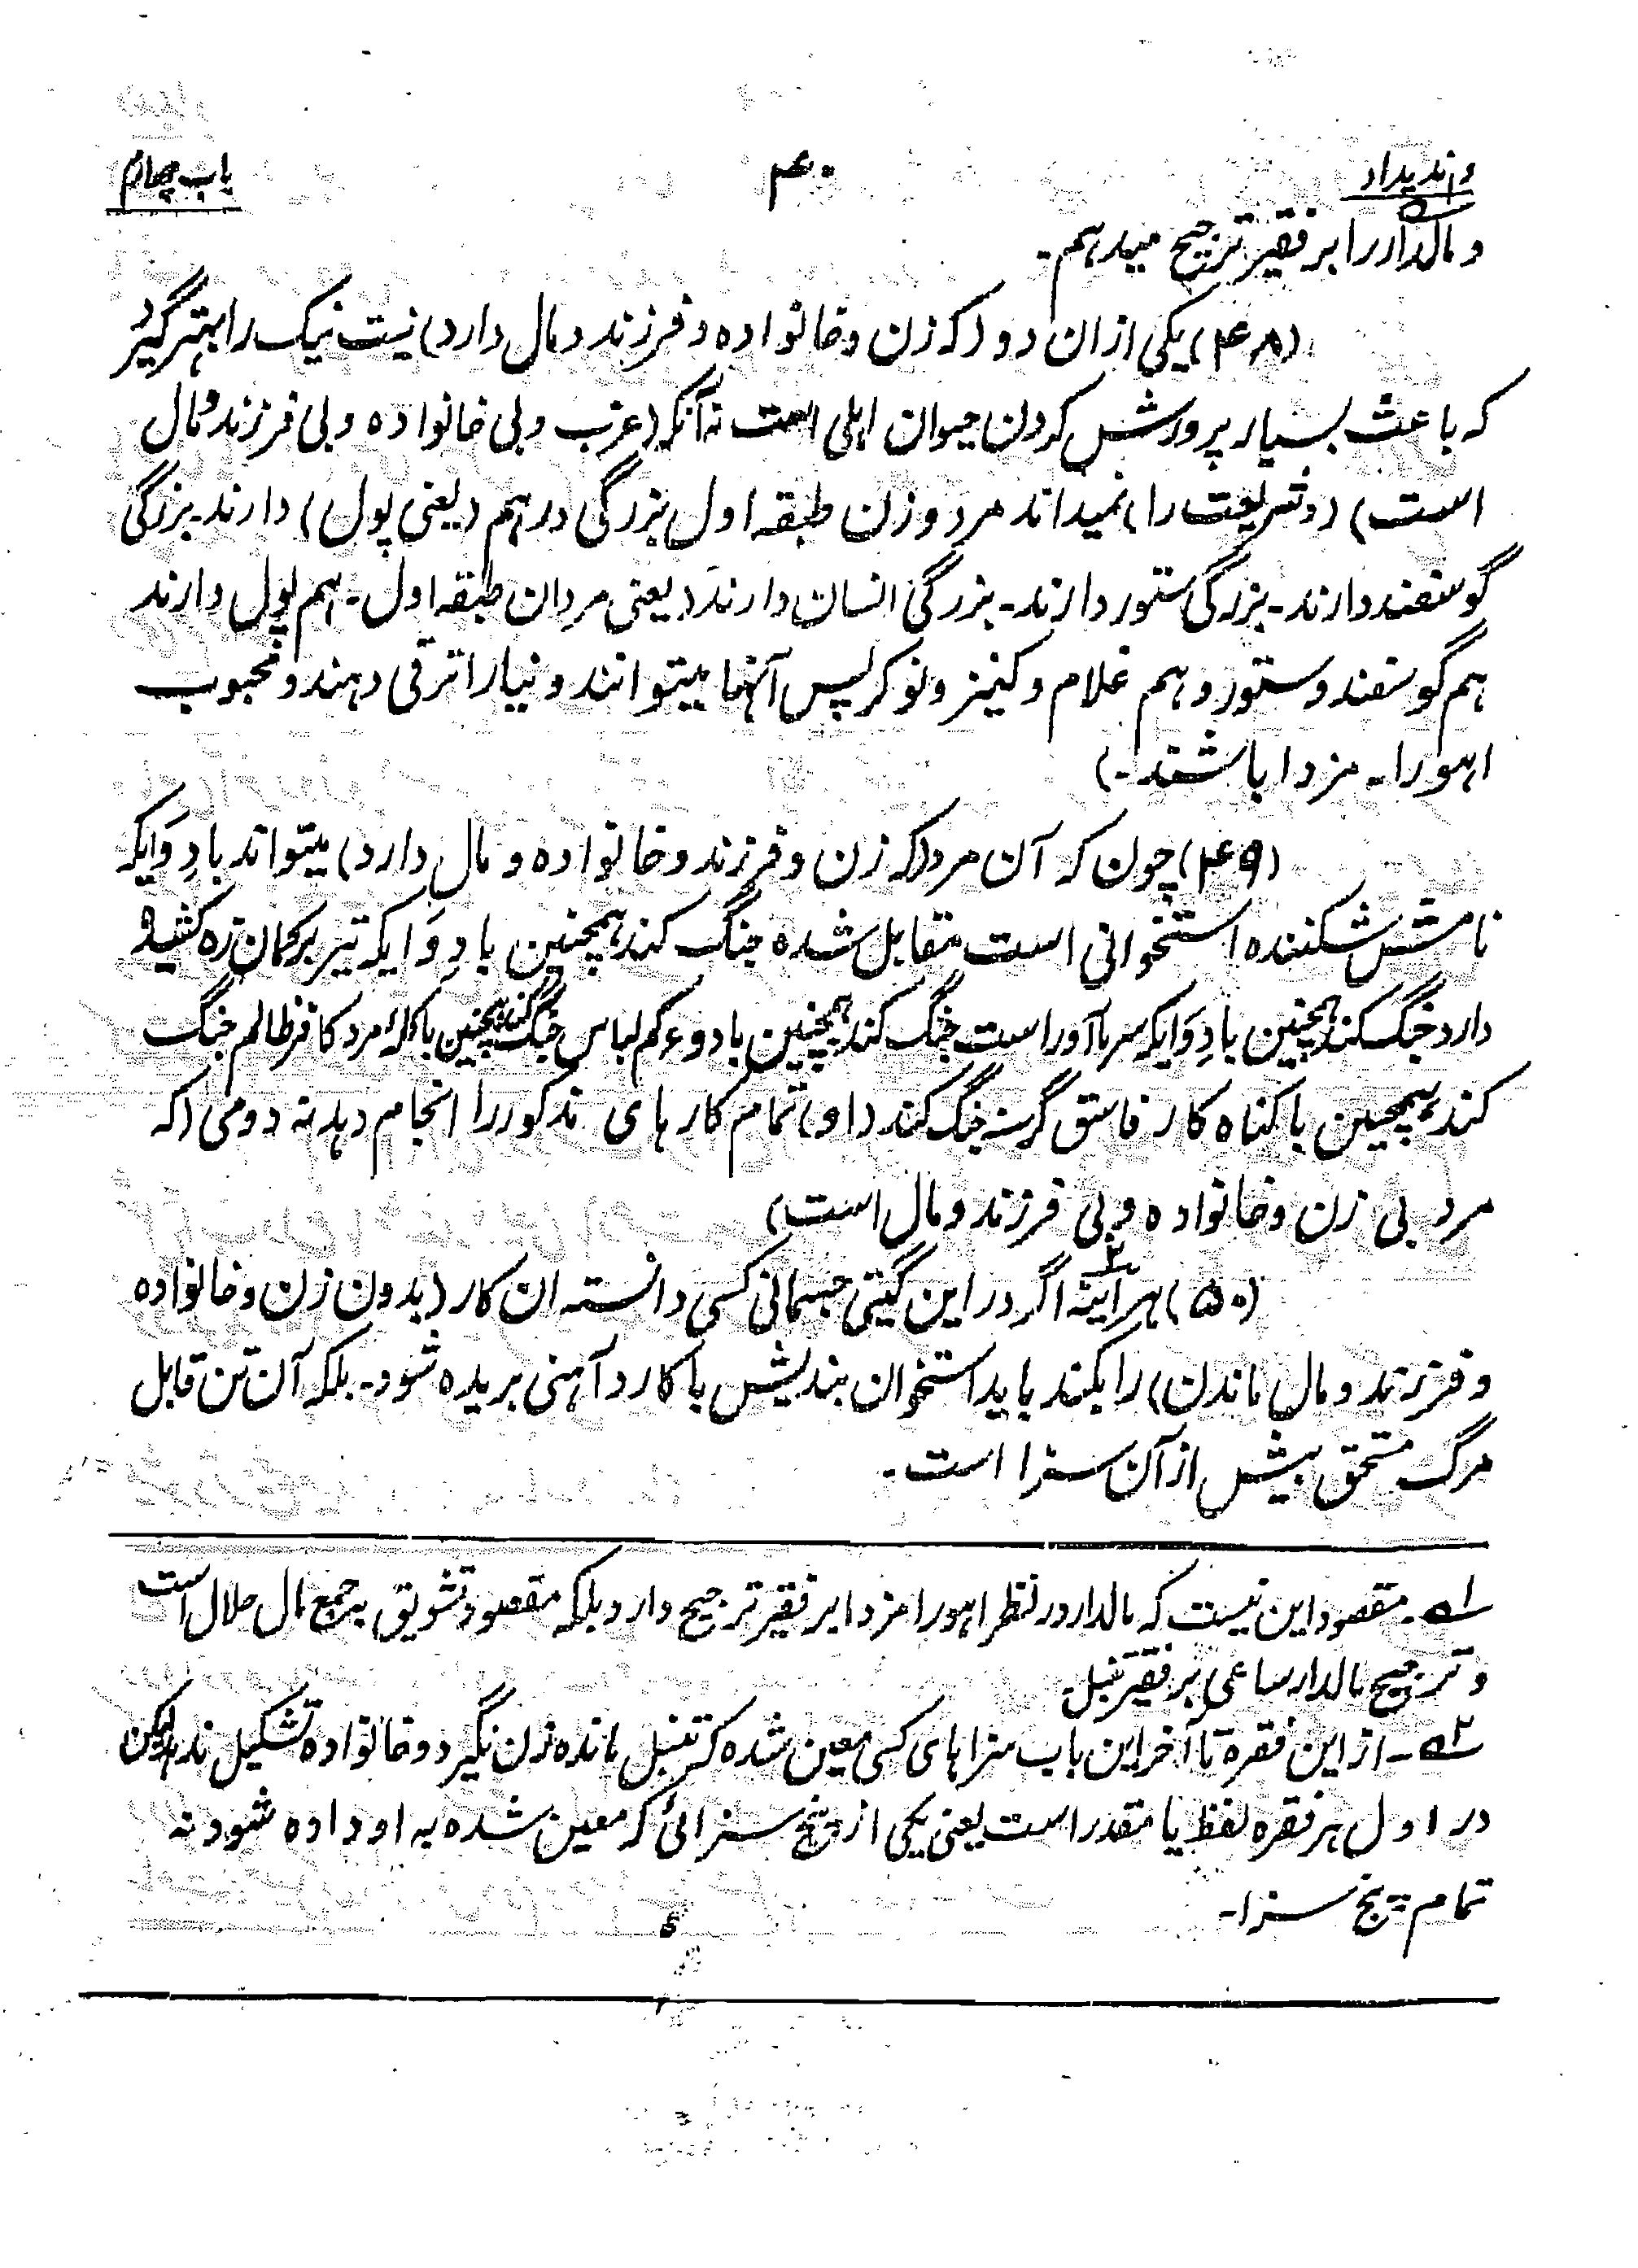 وندیداد
۴۰
باب چهارم
و مالدار را بر فقیر ترجیح میدهم۔
(۴۸) یکی از ان دو (که زن و خانواده و فرزند و مال دارد) نیت نیک را بهتر گیرد
که باعث بسیار پرورش کردن حیوان اهلی است نه آنکه (عزب و بی خانواده و بی فرزند و مال
است) (و شریعت را) نمیداند مرد و زن طبقه اول بزرگی درهم (یعنی پول) دارند۔ بزرگی
گوسفند دارند۔ بزرگی ستور دارند۔ بزرگی انسان دارند (یعنی مردان طبقه اول۔ هم پول دارند
هم گوسفند و ستور و هم غلام و کنیز و نوکر پس آنها میتوانند دنیا را ترقی دهند و محبوب
اهورا۔ مزدا باشند۔)
(۴۹) چون که آن مرد (که زن و فرزند و خانواده و مال دارد) میتواند با دِوَ ایکه
نامش شکننده استخوانی است مقابل شده جنگ کند همچنین با دِوَ ایکه تیر بر کمان زه کشیده
دارد جنگ کند همچنین با دِوَ ایکه سرما آور است جنگ کند همچنین با دوء کم لباس جنگ کند همچنین با مرد کافر ظالم جنگ
کند همچنین با گناه کار فاسق گرسنه جنگ کند (او) تمام کار های مذکور را انجام دهد نه دومی (که
مرد بی زن و خانواده و بی فرزند و مال است)
(۵۰) هر آینه۲ اگر در این گیتی جسمانی کسی دانسته ان کار (بدون زن و خانواده
و فرزند و مال ماندن) را بکند باید استخوان بندیش با کارد آهنی بریده شود۔ بلکه آن تن قابل
مرگ مستحق بیش از آن سزا است۔
۱؎۔ مقصود این نیست که مالدار در نظر اهورا مزدا بر فقیر ترجیح دارد بلکه مقصود تشویق بجمع مال حلال است
و ترجیح مالدار ساعی بر فقیر تنبل۔
۲؎۔ از این فقره تا آخر این باب سزاهای کسی معین شده که تنبل مانده زن نگیرد و خانواده تشکیل ندهد لیکن
در اول هر فقره لفظ یا مقدر است یعنی یکی از پنج سزائی که معین شده به او داده شود نه
تمام پنج سزا۔